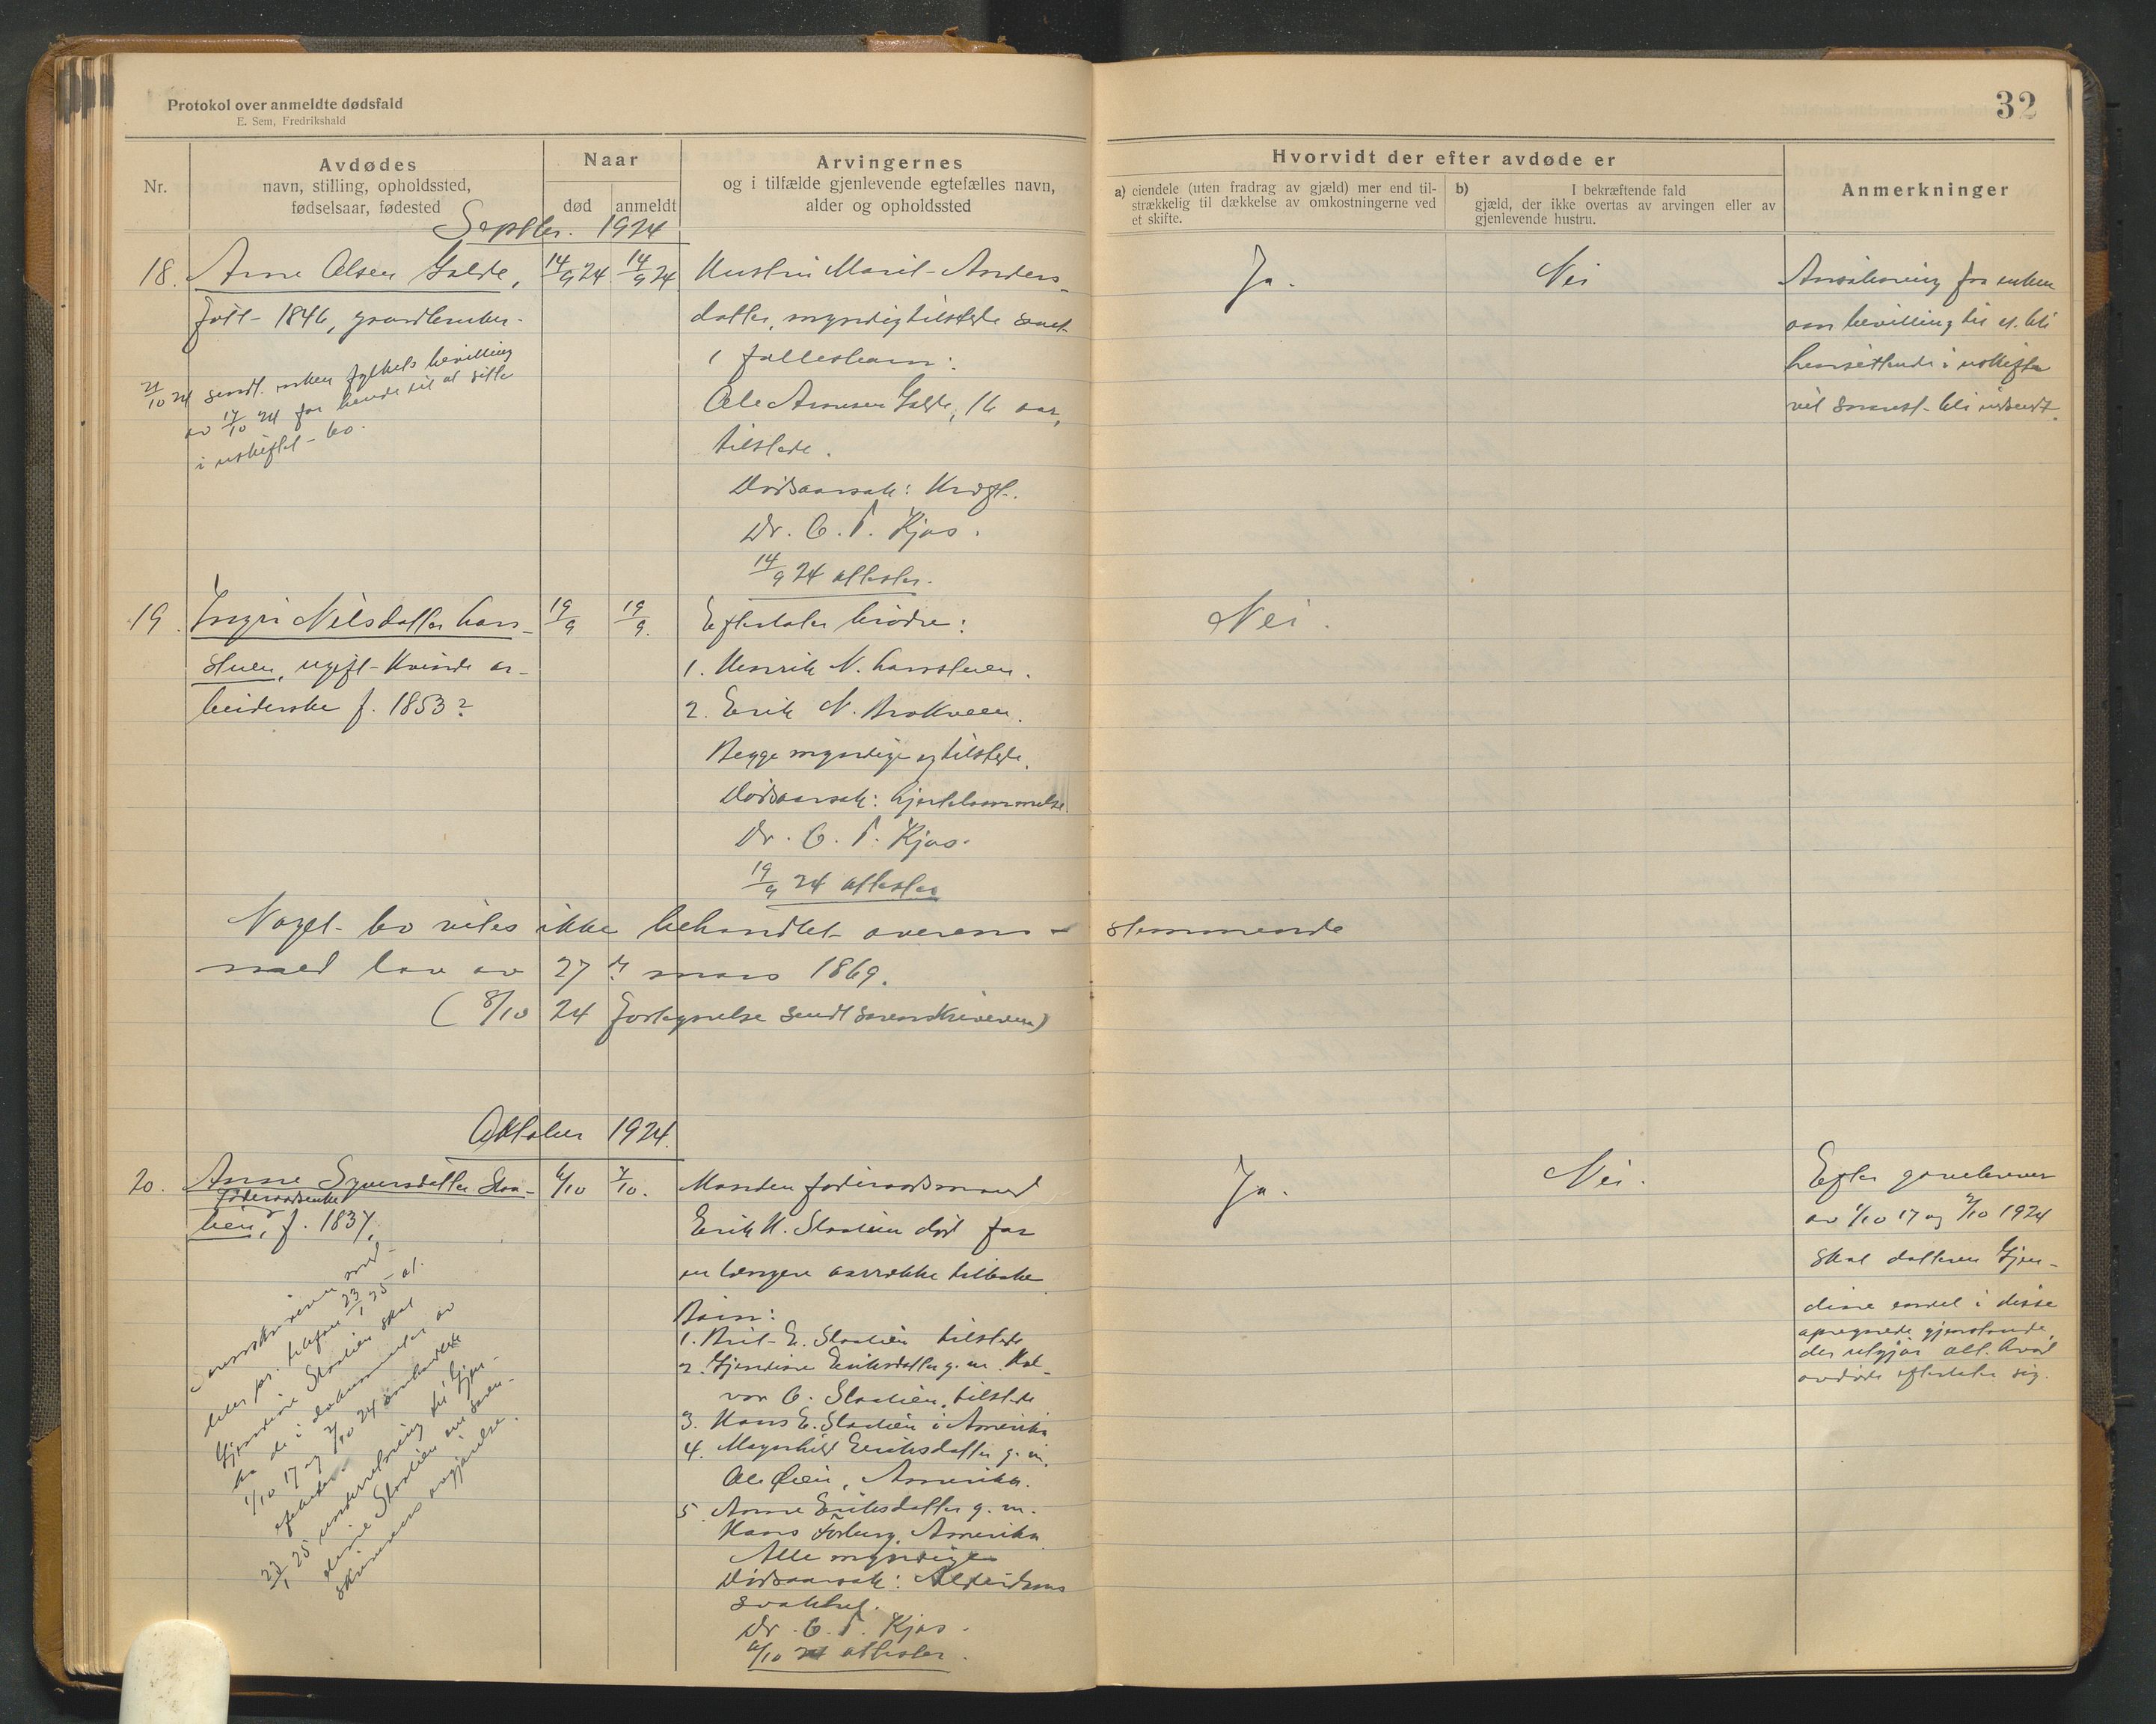 Protokol over anmeldte dødsfald
E. Sem, Fredrikshald
32
Nr.
Avdødes
navn, stilling, opholdssted,
fødselsaar, fødested
Naar
død
anmeldt
Arvingernes
og i tilfælde gjenlevende egtefælles navn,
alder og opholdssted
Hvorvidt der efter avdøde er
a) eiendele (uten fradrag av gjæld) mer end til-
strækkelig til dækkelse av omkostningerne ved
et skifte.
b) I bekræftende fald
gjæld, der ikke overtas av arvingen eller av
gjenlevende hustru.
Anmerkninger
Septbr. 1924
18. Arne Olsen Galde,
født 1846, gaardbruker.
14/9 24
14/9 24
21/10 24 sendt enken fylkets bevilling
av 17/10 24 for hende til at sitte
i uskiftet bo.
Hustru Marit Anders-
datter, myndig tilstede samt
1 fællesbarn:
Ole Arnesen Galde, 16 aar,
tilstede.
Dødsaarsak: Kræft.
Dr. C. T. Kjos.
14/9 24 attester.
Ja.
Nei
Ansøkning fra enken
om bevilling til at bli
hensittende i uskifte
vil snarest bli indsendt.
19. Ingri Nilsdatter Lars-
stuen, ugift kvinde ar-
beiderske f. 1853?
19/9
19/9.
Efterlater brødre:
1. Henrik N. Larsstuen.
2. Erik N. Brokveen.
Begge myndige og tilstede.
Dødsaarsak: hjertelammelse
Dr. C. T. Kjos.
19/9 24 attester
Nei.
Noget bo vites ikke behandlet overens- stemmende
med lov av 27de mars 1869.
(8/10 24 fortegnelse sendt sorenskriveren)
Oktober 1924.
20. Anne Syversdatter Slaa-
føderaadsenke
lien, f. 1837.
6/10
7/10.
Sorenskriveren med-
deler pr. telefon 23/1 25 at
Gjendine Slaalien skal
ha de i dokumenter av
1/10 17 og 2/10 24 omhandlede
efekter.
23/1 25 underretning til Gjen-
dine Slaalien om soren-
skriverens avgjørelse.
Manden føderaadsmand
Erik H. Slaalien død for
en længere aarrække tilbake
Barn:
1. Brit E. Slaalien tilstede
2. Gjendine Eriksdatter g. m. Hal-
vor O. Slaalien, tilstede
3. Hans E. Slaalien i Amerika
4. Magnhild Eriksdatter g. m.
Ole Øien, Amerika.
5. Anne Eriksdatter g. m.
Hans Forberg, Amerika
Alle myndige
Dødsaarsak: Alderdoms
svakhet.
Dr. C. T. Kjos.
6/10 24 attester.
Ja.
Nei.
Efter gavebrever
av 1/10 17 og 2/10 1924
skal datteren Gjen-
dine endel i disse
opregnede gjenstande,
der utgjør alt hvad
avdøde efterlater sig.